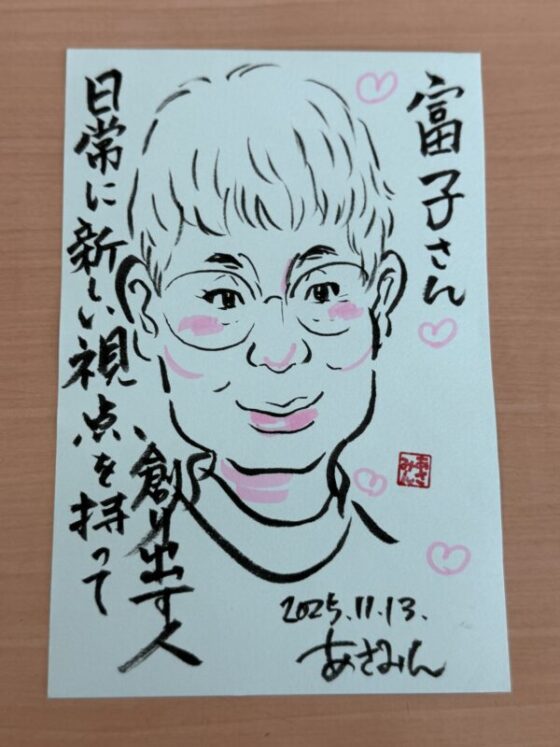 富子さん
日常に新しい視点を持って
創り出す人
2025.11.13.
あさみん
あさみん